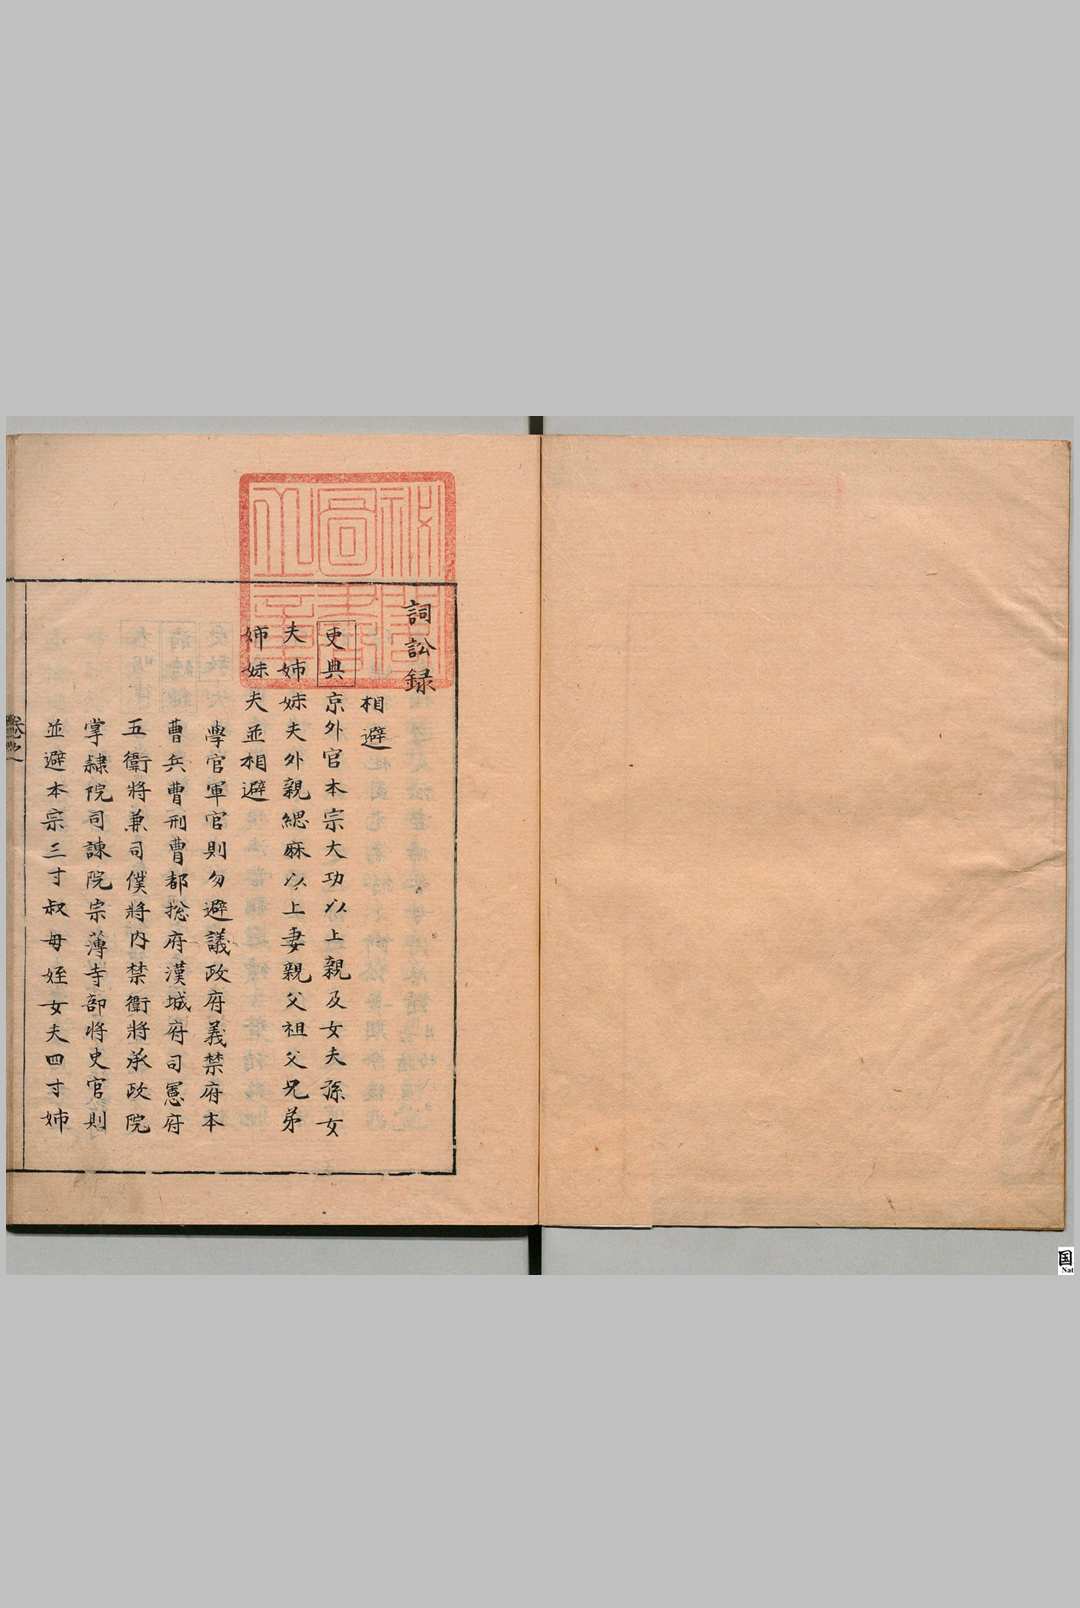 詞訟録
相避
吏典京外官本宗大功以上親及女夫孫女
夫姉妹夫外親緦麻以上妻親父祖父兄弟
姉妹夫並相避
學官軍官則勿避議政府義禁府本
曹兵曹刑曹都捴府漢城府司憲府
五衛將兼司僕將内禁衛將承政院
掌隷院司諫院宗薄寺部將史官則
並避本宗三寸叔母姪女夫四寸姉
国
Nat